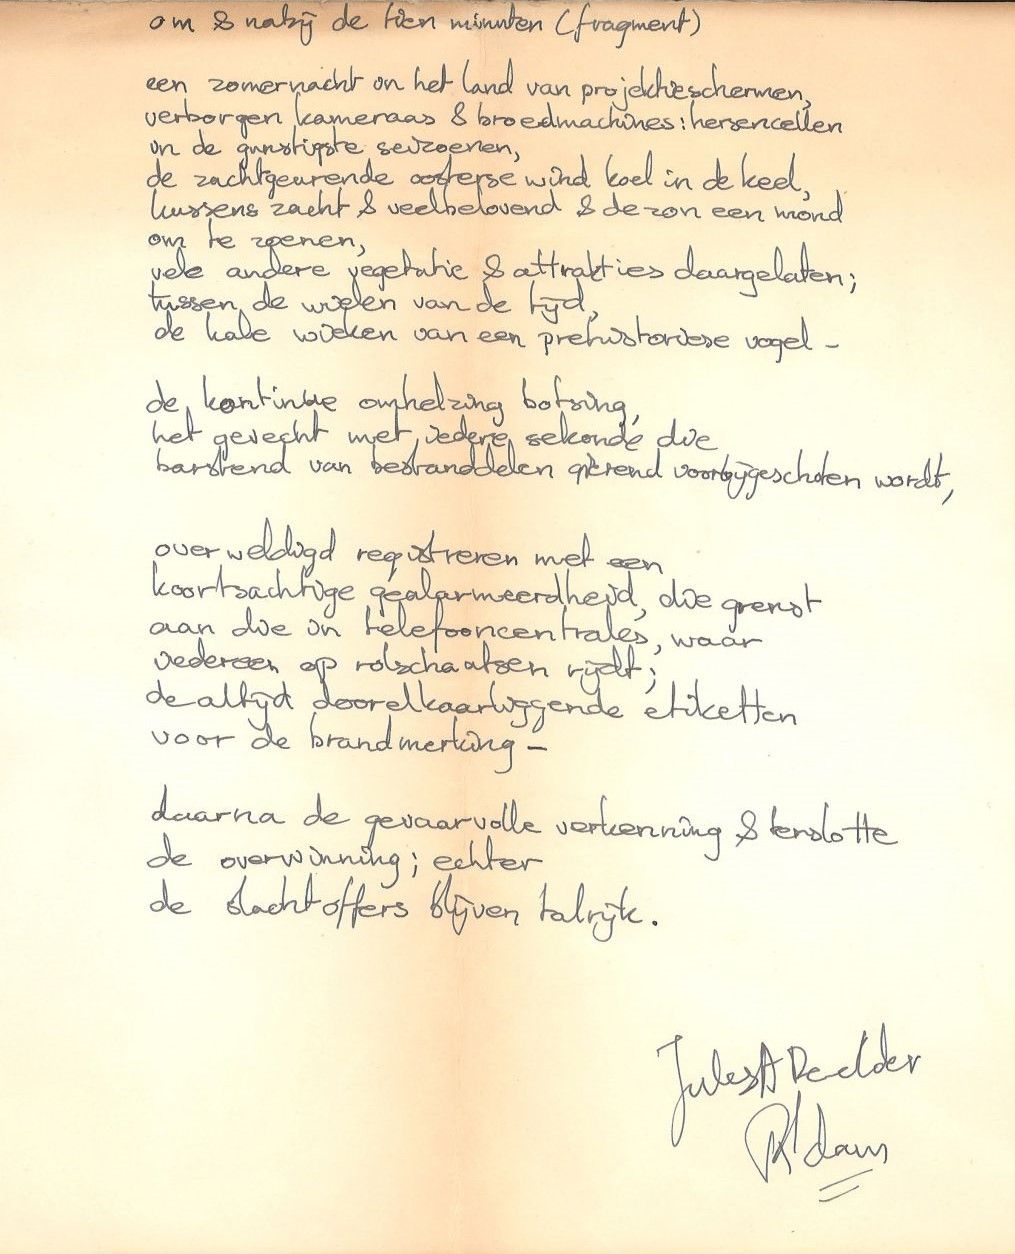 om & nabij de tien minuten (fragment)
een zomernacht in het land van projektieschermen,
verborgen kameraas & broedmachines: hersencellen
in de gunstigste seizoenen,
de zachtgeurende oosterse wind koel in de keel,
kussens zacht & veelbelovend & de zon een mond
om te zoenen,
vele andere vegetatie & attrakties daargelaten;
tussen de wielen van de tijd,
de kale wieken van een prehistoriese vogel –
de kontinue omhelzing botsing,
het gevecht met iedere sekonde die
barstend van bestanddelen gierend voorbijgeschoten wordt,
overweldigd registreren met een
koortsachtige gealarmeerdheid, die grenst
aan die in telefooncentrales, waar
iedereen op rolschaatsen rijdt;
de altijd doorelkaarliggende etiketten
voor de brandmerking –
daarna de gevaarvolle verkenning & tenslotte
de overwinning; echter
de slachtoffers blijven talrijk.
Jules A Deelder
R'dam